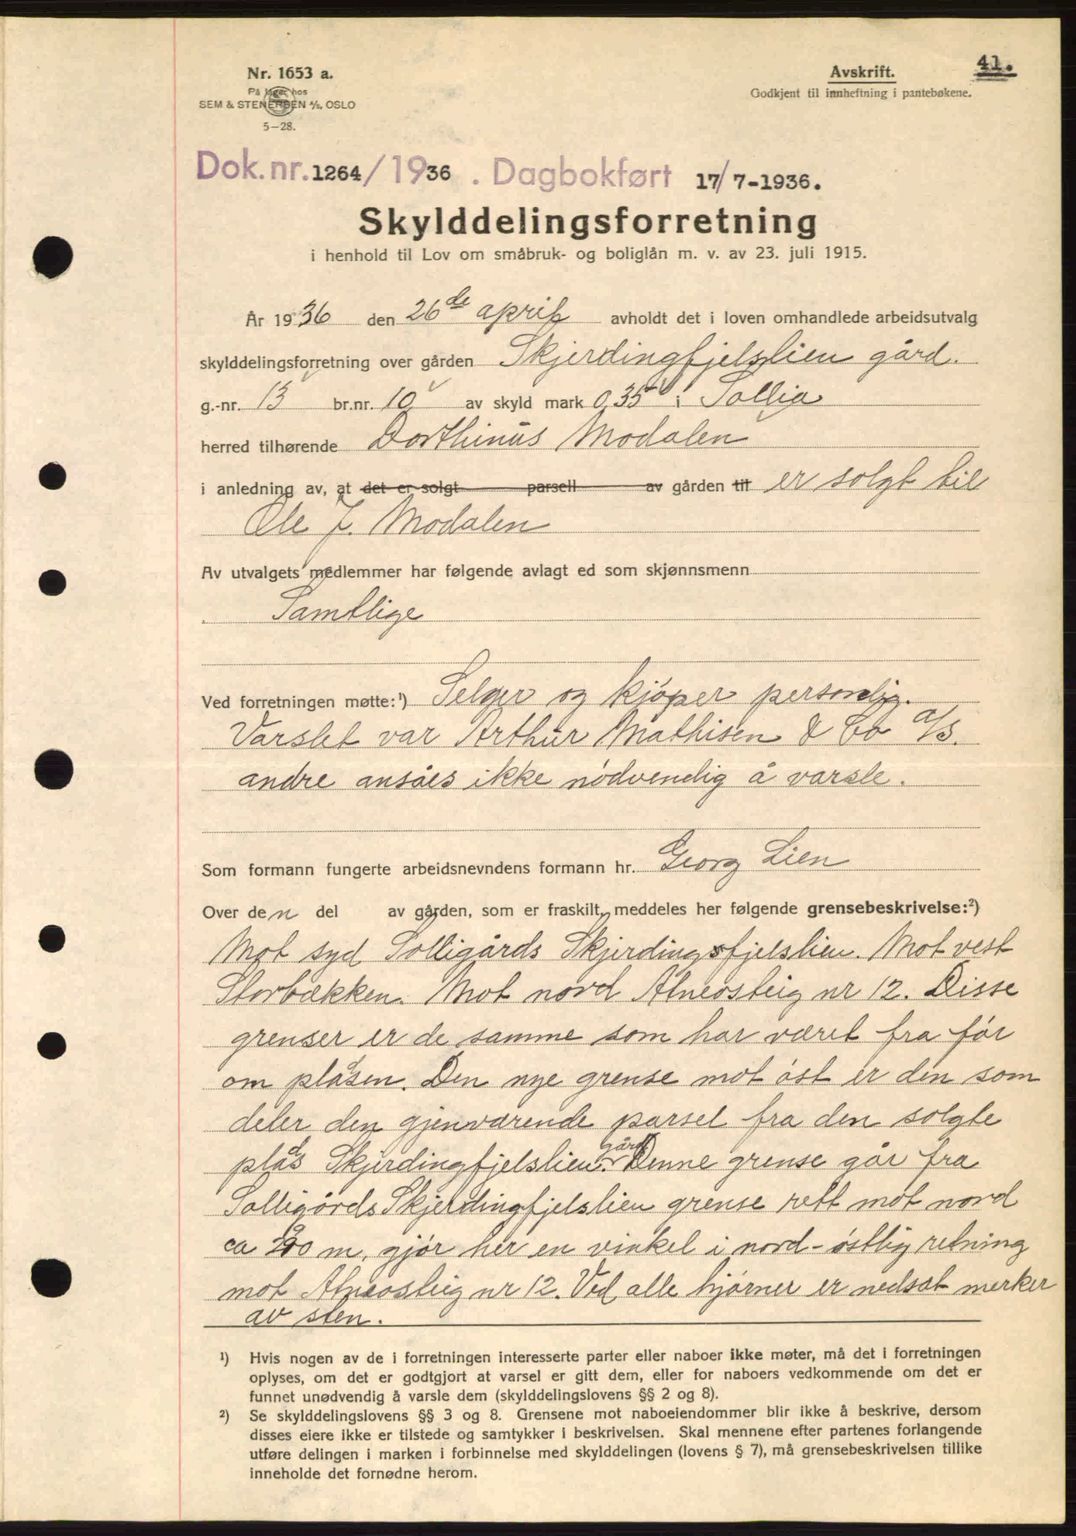 Nr. 1653 a.
På lager hos
SEM & STENERSEN A/S, OSLO
5—28.
Avskrift.
Godkjent til innheftning i pantebøkene.
41.
Dok. nr. 1264/1936. Dagbokført 17/7-1936.
Skylddelingsforretning
i henhold til Lov om småbruk- og boliglån m. v. av 23. juli 1915.
År 1936 den 26de april avholdt det i loven omhandlede arbeidsutvalg
skylddelingsforretning over gården Skjerdingfjelslien gård.
g.-nr. 13 br.nr. 10 av skyld mark 0,35 i Sollia
herred tilhørende Dorthinus Modalen
i anledning av, at det er solgt parsell av gården til er solgt til
Ole J. Modalen
Av utvalgets medlemmer har følgende avlagt ed som skjønnsmenn
Samtlige
Ved forretningen møtte:¹) Selger og kjøper personlig.
Varslet var Arthur Mathisen & Co A/S.
andre ansåes ikke nødvendig å varsle.
Som formann fungerte arbeidsnevndens formann hr. Georg Lien
Over den del av gården, som er fraskilt, meddeles her følgende grensebeskrivelse:²)
Mot syd Solligårds Skjerdingsfjelslien. Mot vest
Storbækken. Mot nord Atneosteig nr 12. Disse
grenser er de samme som har været fra før
om plassen. Den nye grense mot øst er den som
deler den gjenværende parsel fra den solgte
plads Skjerdingfjelslien gård. Denne grense går fra
Solligårds Skjerdingfjelslien grense rett mot nord
ca m, gjør her en vinkel i nord-østlig retning
mot Atneosteig nr 12. Ved alle hjørner er nedsat merker
av sten.
¹) Hvis nogen av de i forretningen interesserte parter eller naboer ikke møter, må det i forretningen
oplyses, om det er godtgjort at varsel er gitt dem, eller for naboers vedkommende om det er
funnet unødvendig å varsle dem (skylddelingslovens §§ 2 og 8).
²) Se skylddelingslovens §§ 3 og 8. Grensene mot naboeiendommer blir ikke å beskrive, dersom
disses eiere ikke er tilstede og samtykker i beskrivelsen. Skal mennene efter partenes forlangende
utføre delingen i marken i forbinnelse med skylddelingen (lovens § 7), må grensebeskrivelsen tillike
inneholde det fornødne herom.